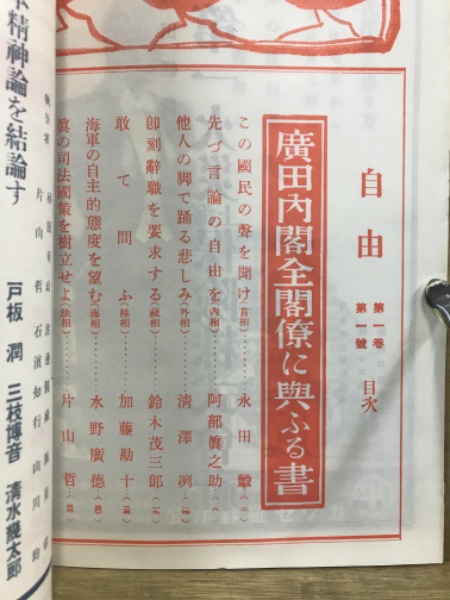 自由 第一卷 第一號 目次
廣田內閣全閣僚に與ふる書
この國民の聲を聞け(首相)………永田
先づ言論の自由を(內相)………阿部眞之助
他人の脚で踊る悲しみ(外相)………淸澤洌
卽刻辭職を要求する(藏相)………鈴木茂三郎
敢て問ふ(陸相)………加藤勘十
海軍の自主的態度を望む(海相)………水野廣德
眞の司法國策を樹立せよ(法相)………片山哲
精神論を結論す
片山哲 石濱知行 山川均
戸板潤 三枝博音 清水幾太郎